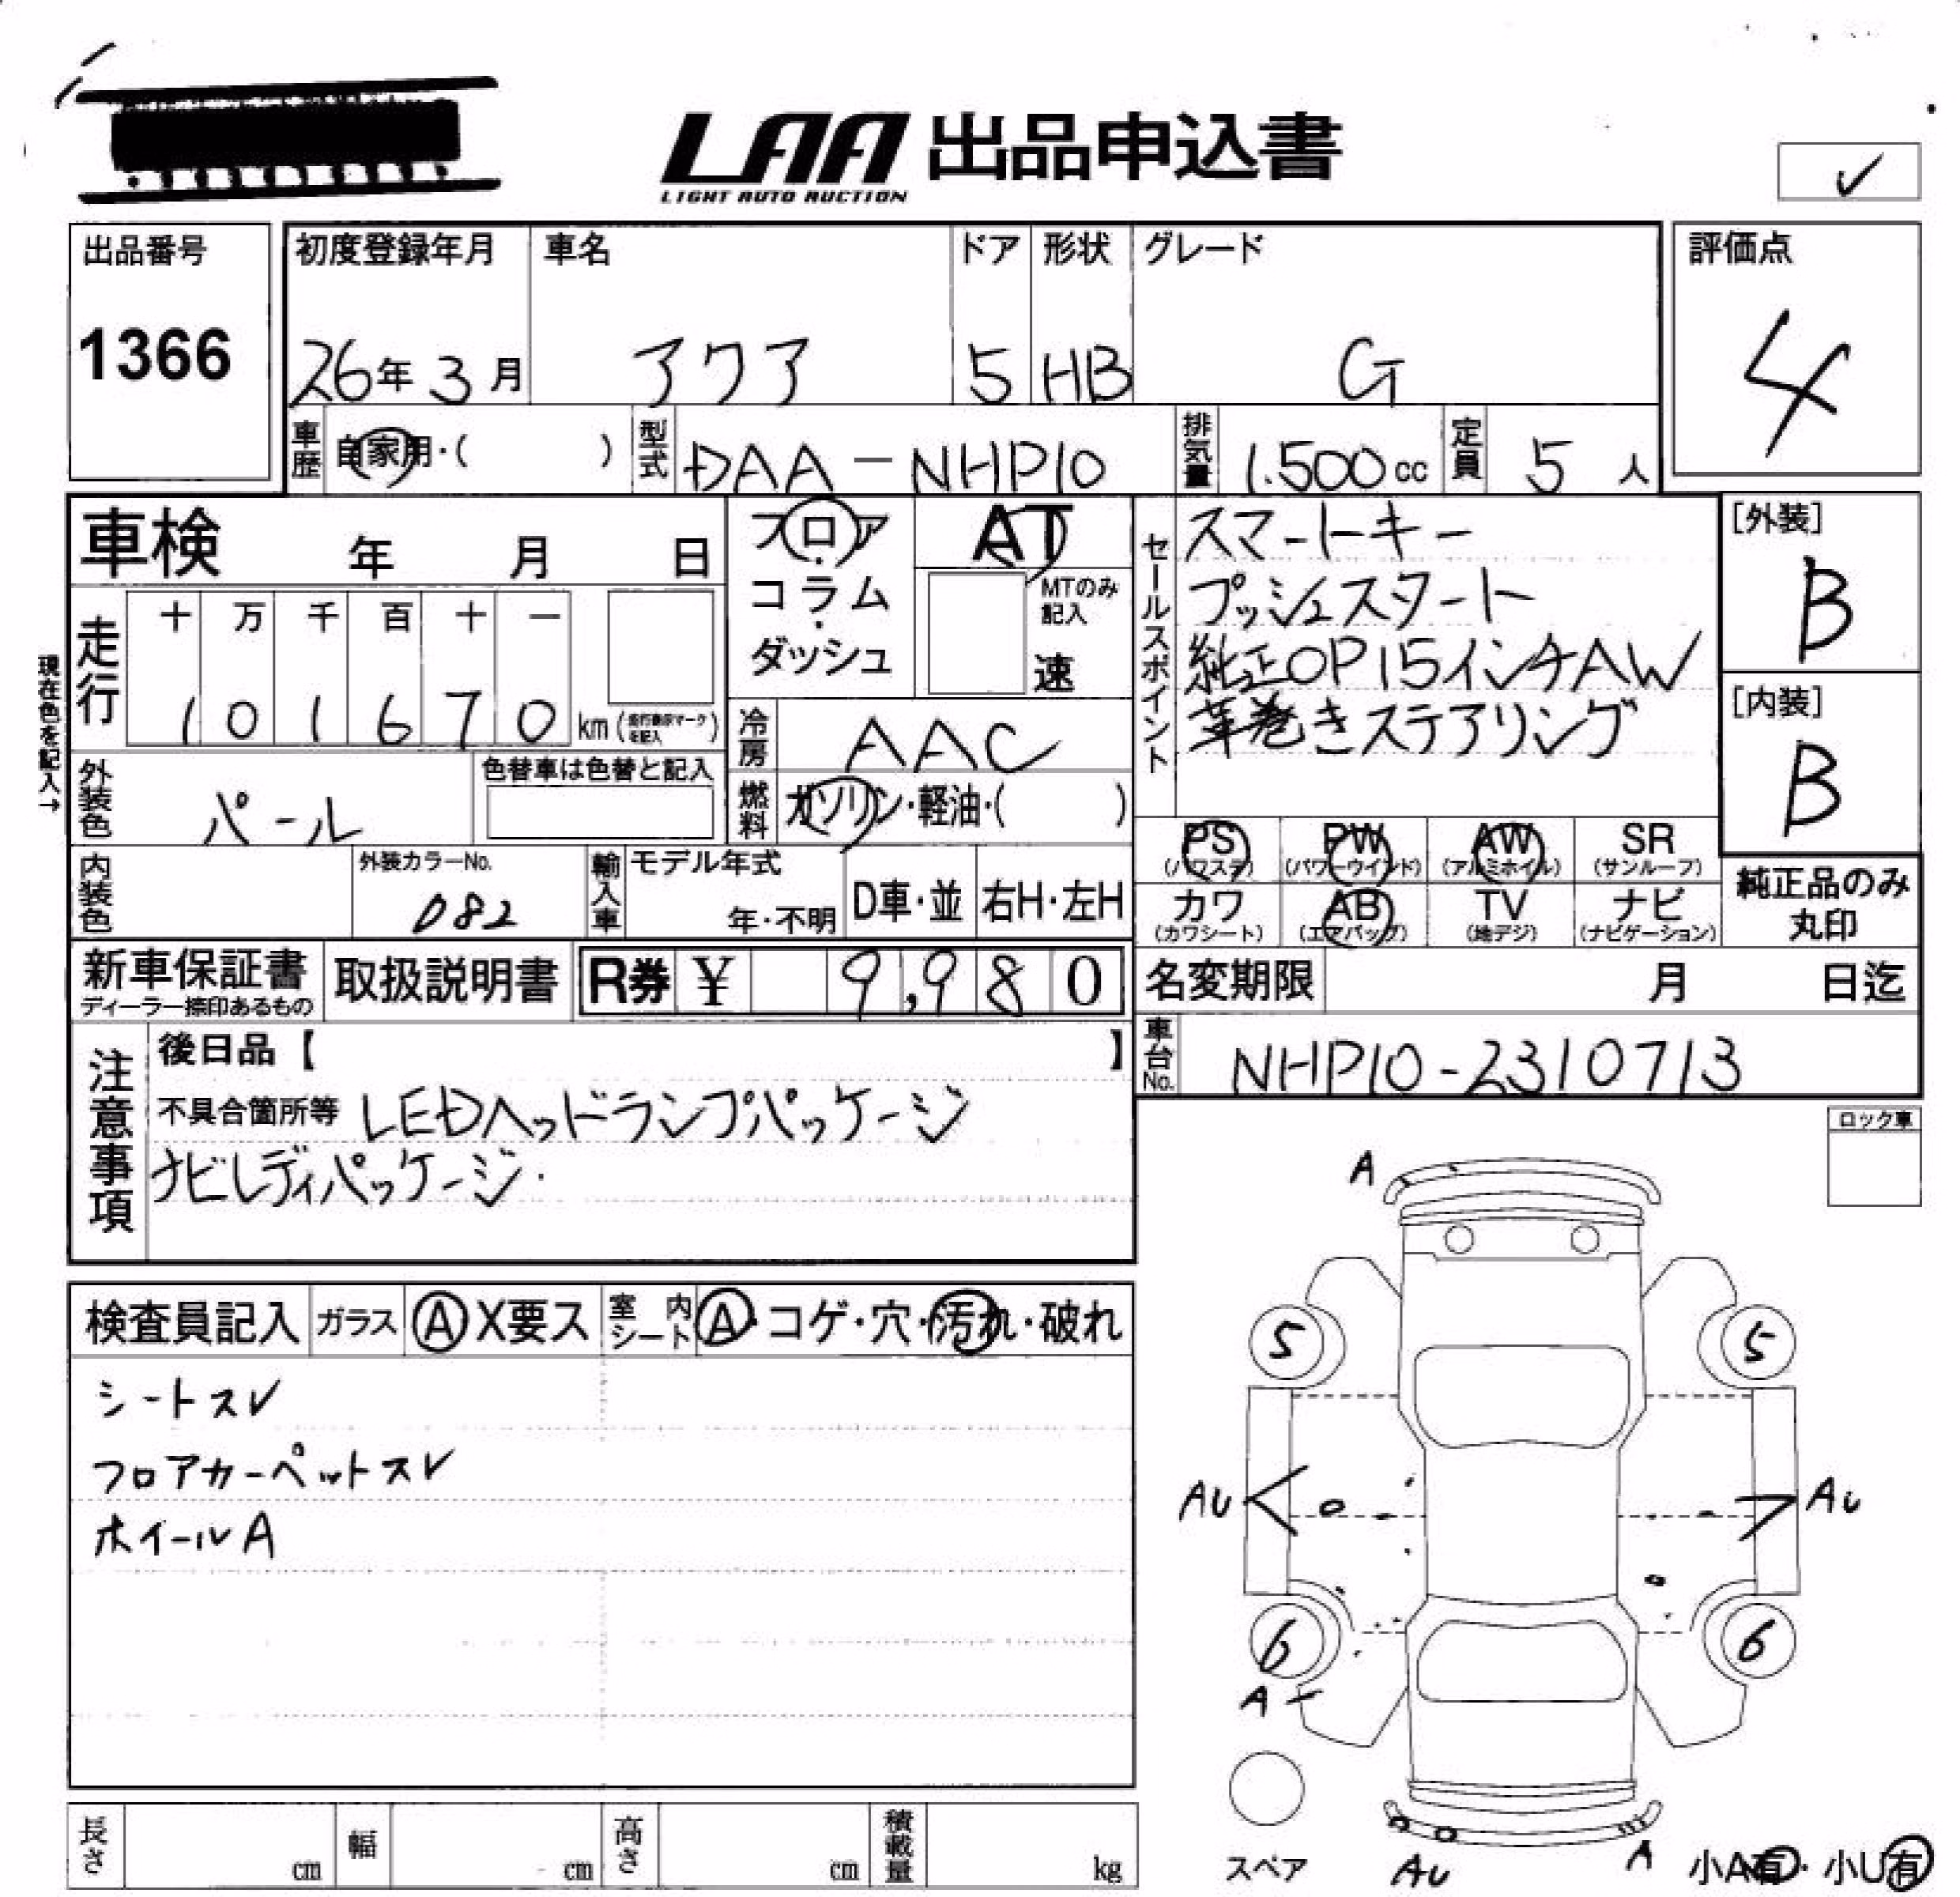 LAA 出品申込書
LIGHT AUTO AUCTION
✓
出品番号
1366
初度登録年月
26年 3月
車名
アクア
ドア
5
形状
HB
グレード
G
評価点
4
車歴 自家用・( )
型式 DAA-NHP10
排気量 1.500cc
定員 5人
車検 年 月 日
現在色を記入→
走行
十 万 千 百 十 一
1 0 1 6 7 0 km
フロア・コラム・ダッシュ
AT
MTのみ記入
速
冷房 AAC
燃料 ガソリン・軽油・( )
セールスポイント
スマートキー
プッシュスタート
純正OP15インチAW
革巻きステアリング
[外装]
B
[内装]
B
外装色 パール
色替車は色替と記入
内装色
外装カラーNo.
082
輸入車
モデル年式
年・不明
D車・並
右H・左H
PS
(パワステ)
PW
(パワーウインド)
AW
(アルミホイル)
SR
(サンルーフ)
カワ
(カワシート)
AB
(エアバッグ)
TV
(地デジ)
ナビ
(ナビゲーション)
純正品のみ
丸印
新車保証書
ディーラー捺印あるもの
取扱説明書
R券 ¥ 9,980
名変期限 月 日迄
車台No. NHP10-2310713
注意事項
後日品【 】
不具合箇所等 LEDヘッドランプパッケージ
ナビレディパッケージ.
ロック車
検査員記入
ガラス A X要ス
室内シート A・コゲ・穴・汚れ・破れ
シートスレ
フロアカーペットスレ
ホイールA
A
5
5
AU
AU
6
6
A
スペア
AU
A
小A有・小U有
長さ cm
幅 cm
高さ cm
積載量 kg